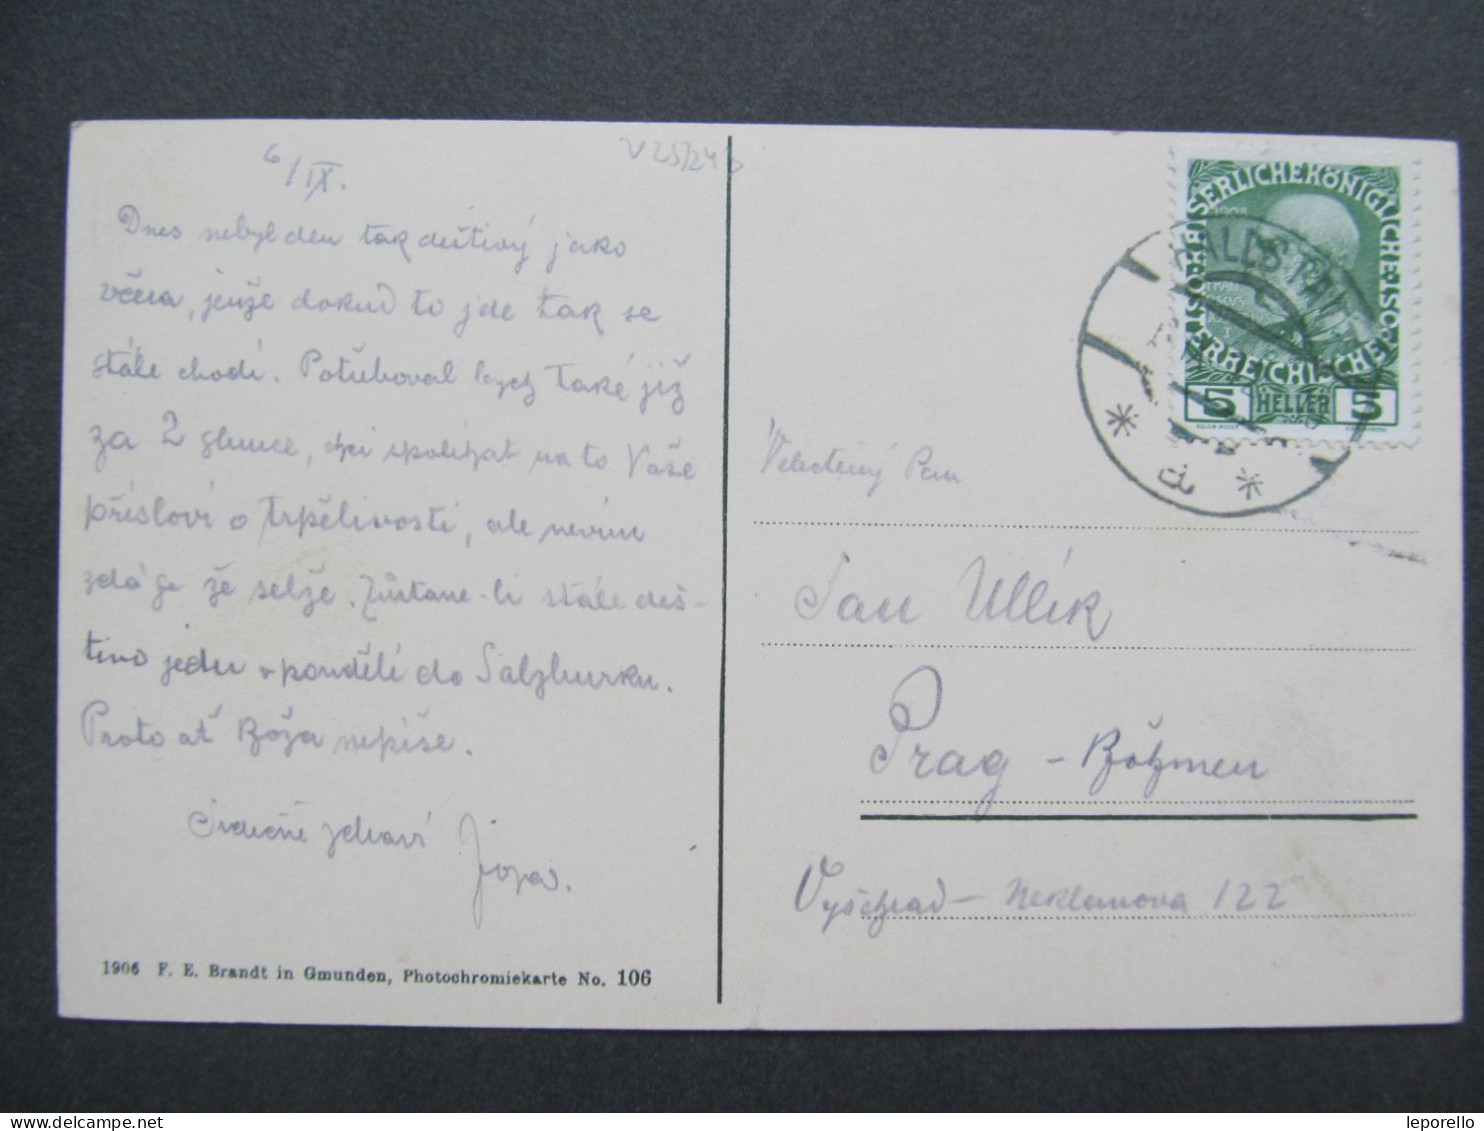 V 25/24
6/IX.
Dnes nebyl den tak deštivý jako
včera, jenže dokud to jde tak se
stále chodí. Potřeboval bych také již
za 2 slunce, chci spoléhat na to Vaše
přísloví o trpělivosti, ale nevím
zdá je že selže. Zůstane-li stále deš-
tivo jedu v pondělí do Salzburku.
Proto ať Bóža nepíše.
Srdečně zdraví
1906 F. E. Brandt in Gmunden, Photochromiekarte No. 106
KAISERLICHEKÖNIGLICHE ÖSTERREICHISCHE POST
1908
5 HELLER 5
HALLSTATT
Velectěný Pan
Jan Ullík
Prag - Böhmen
Vyšehrad - Neklanova 122
leporello